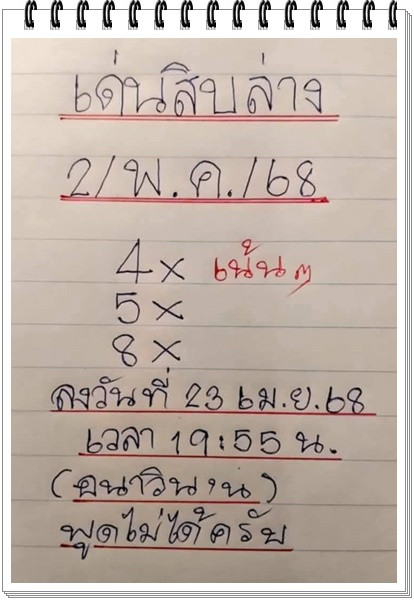 เด่นสิบล่าง
2/พ.ค./68
4x เน้นๆ
5x
8x
ลงวันที่ 23 เม.ย.68
เวลา 19:55 น.
พูดไม่ได้ครับ